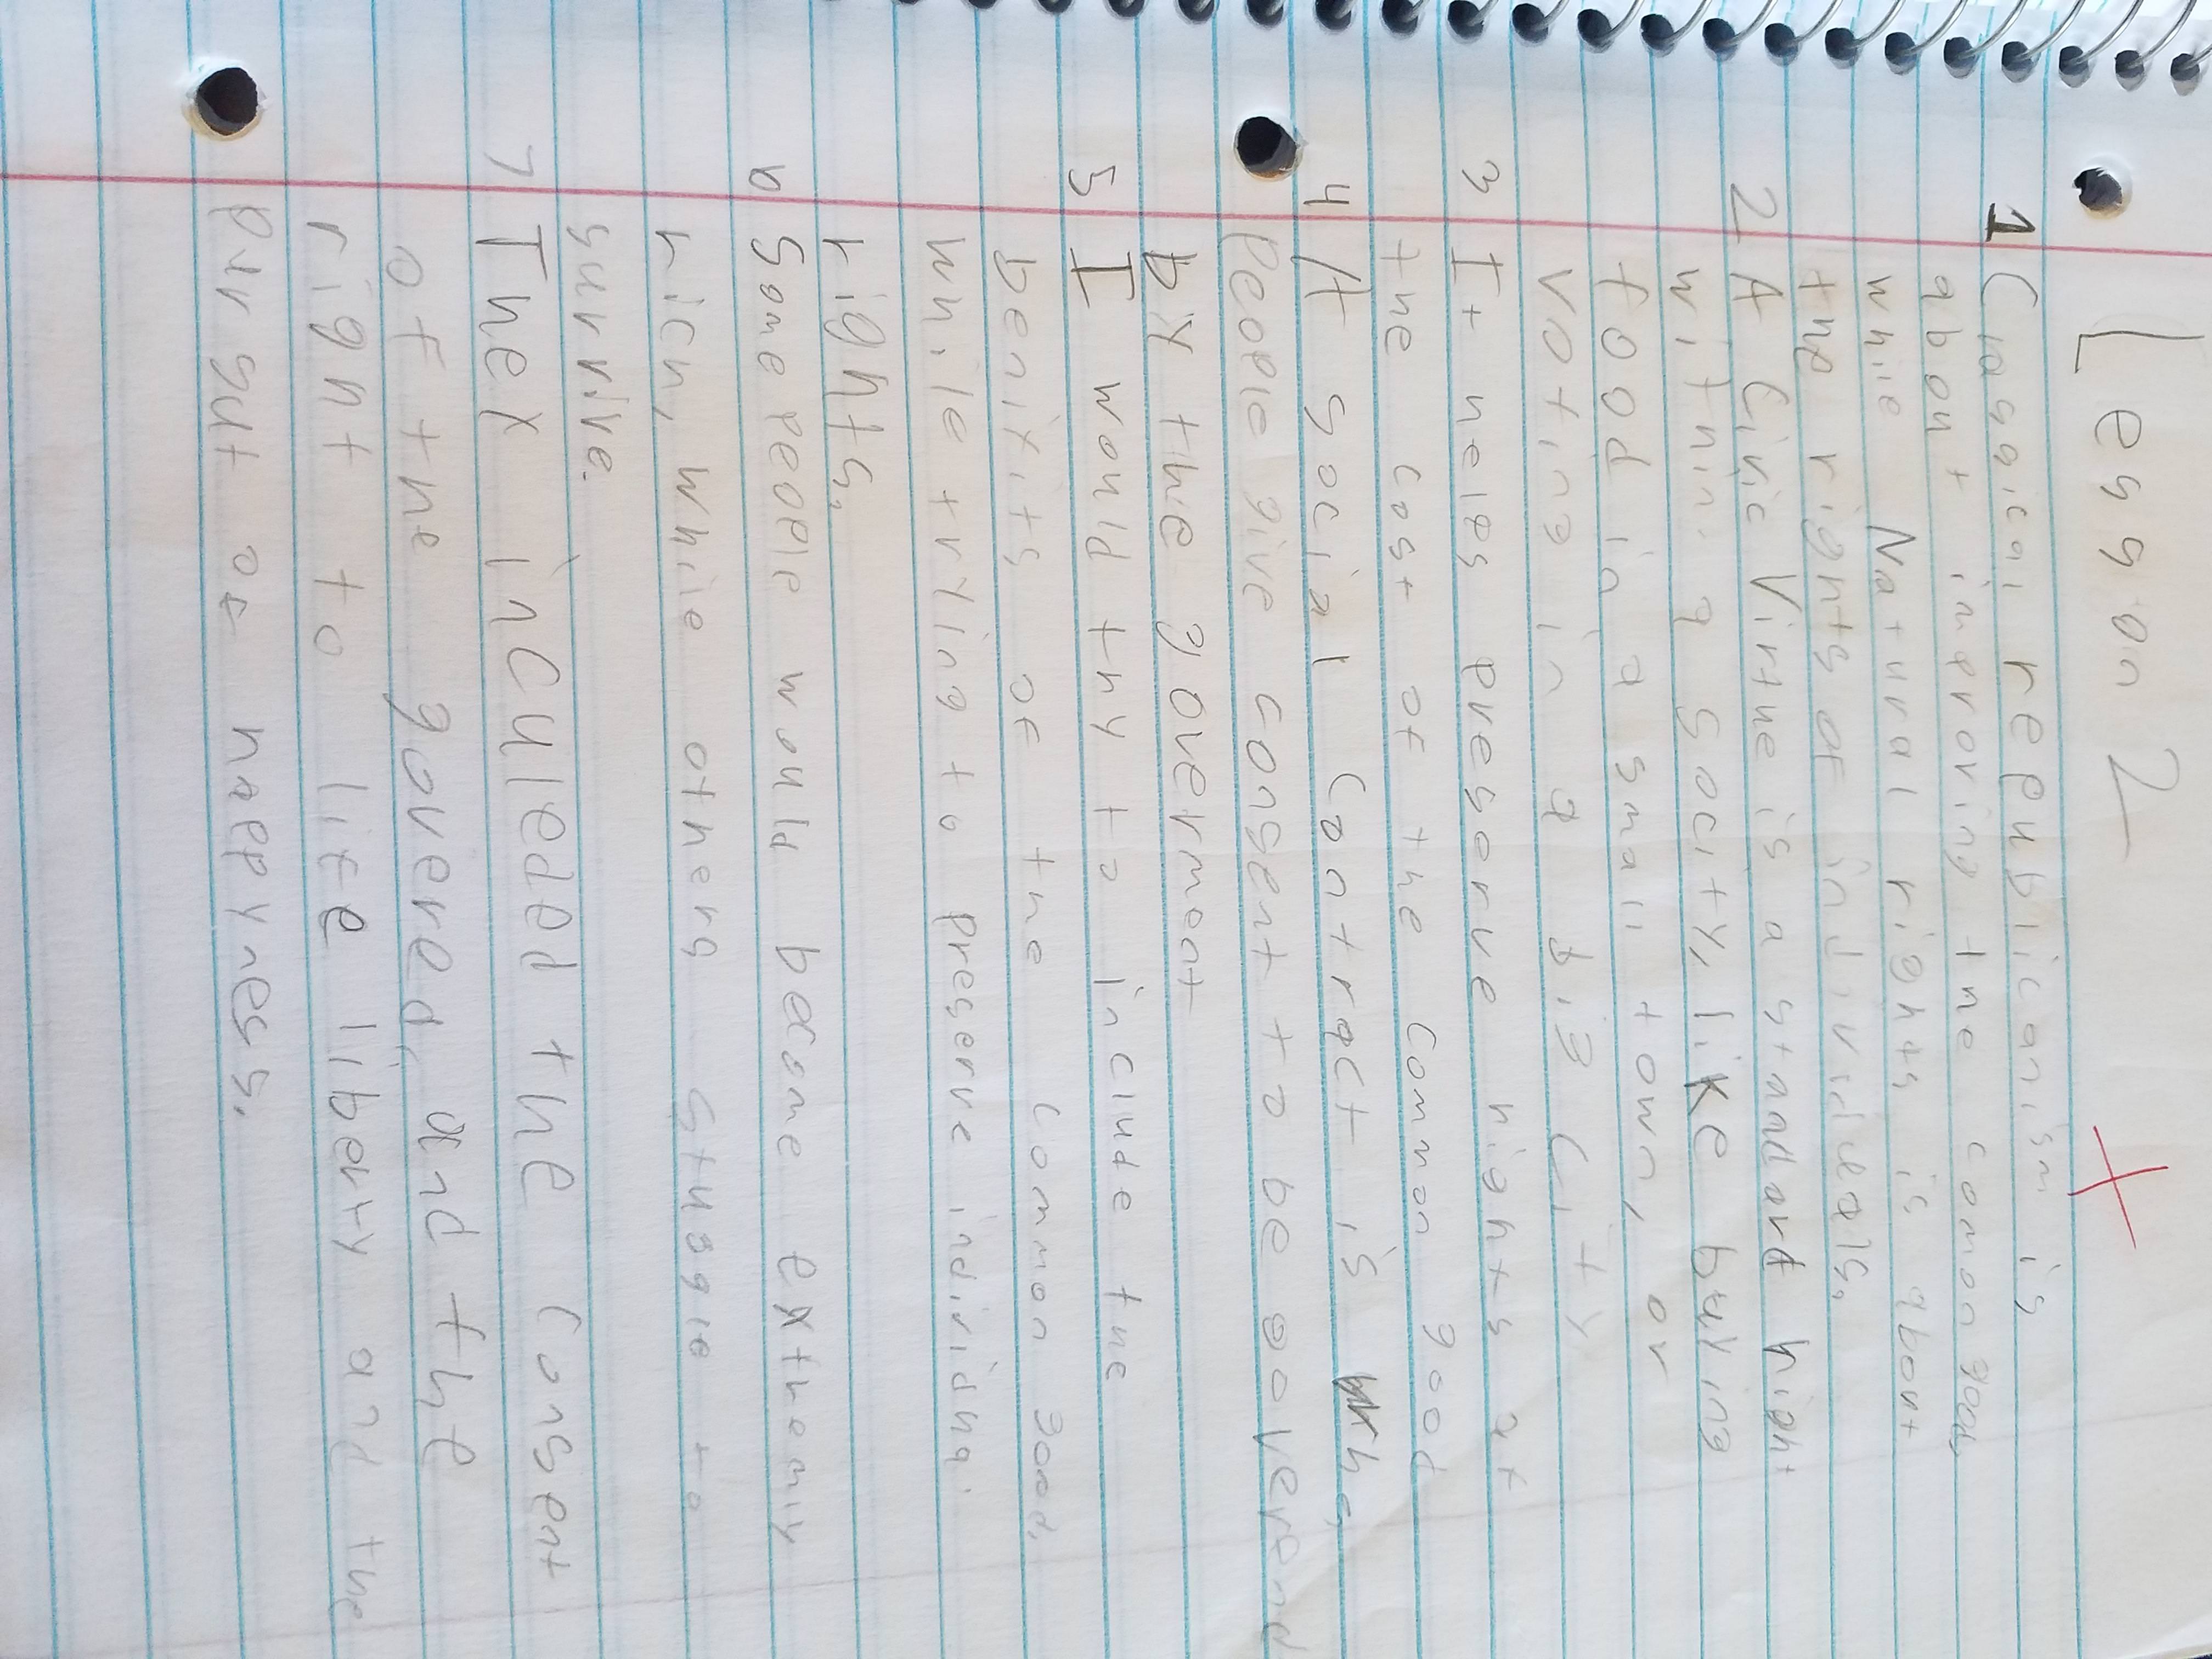 Lesson 2
1 Classical republicanism is
about improving the comon good,
while Natural rights is about
the rights of individeals.
2 A Civic Virtue is a standard right
within a socity, like buying
food in a small town, or
voting in a big City
3 It helps preserve rights at
the cost of the common good
4 A social contract is
People give consent to be goverend
by the government
5 I would try to include the
benifits of the common good,
while trying to preserve individual
rights.
6 Some people would become extremly
rich, while others stuggle to
survive.
7 They inculeded the consent
of the govered, and the
right to life liberty and the
pursut of happyness.